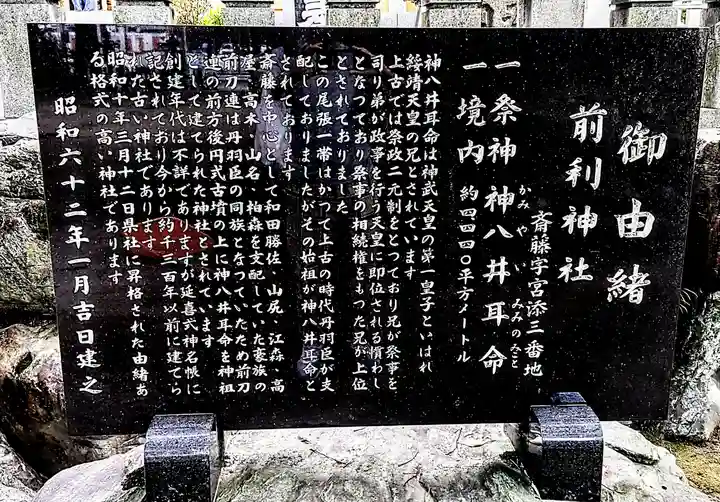 御由緒
前利神社
斎藤字宮添三番地
一祭神 神八井耳命
かみやいみみのみこと
一境内 約四四四〇平方メートル
神八井耳命は神武天皇の第一皇子といはれ
綏靖天皇の兄とされています
上古では祭政二元制をとっており兄が祭事を
司り弟が政事を行う天皇に即位される慣わし
となつており祭事の相続権をもつた兄が上位
とされておりました
この尾張一帯はかつて上古の時代丹羽臣が支
配しておりましたがその始祖が神八井耳命と
されております
斎藤を中心として和田勝佐・山尻・江森・高
屋・高木・山名・柏森を支配していた豪族の
前刀連は丹羽臣の同族となつていたため前刀
連の前方後円式古墳の上に神八井耳命を神祖
として建てられた神社とされています
創建年代は不詳でありますが延喜式神名帳に
記されており今から約千三百年以前に建てら
れた古い神社であります
昭和十年三月十二日県社に昇格された由緒あ
る格式の高い神社であります
昭和六十二年一月吉日建之